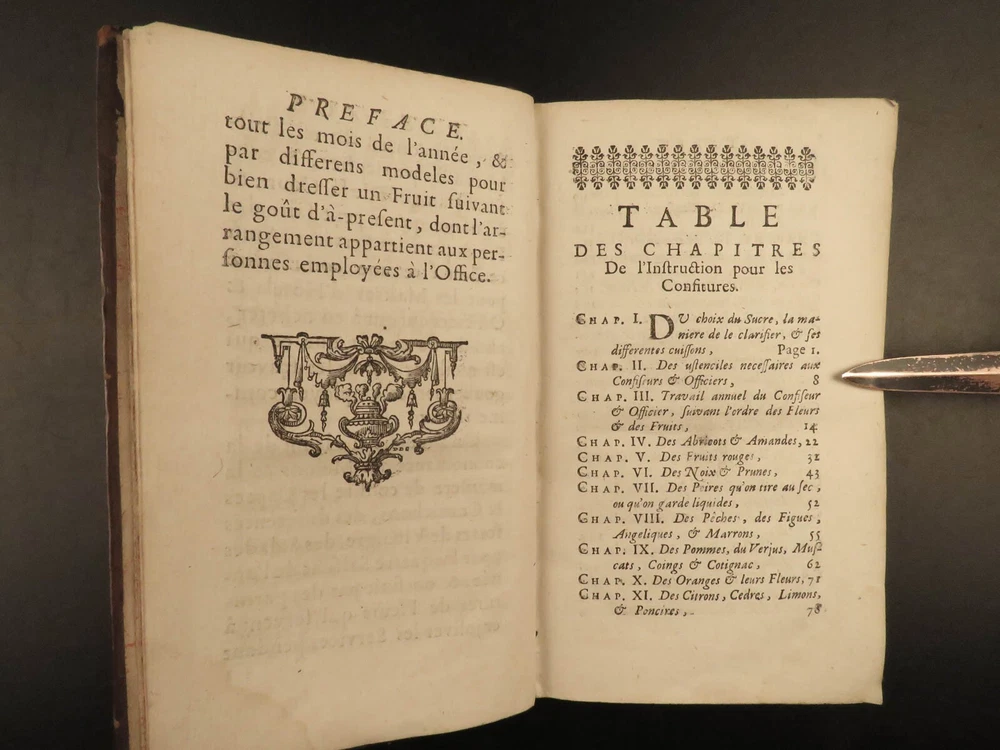 PREFACE.
tout les mois de l'année, &
par differens modeles pour
bien dresser un Fruit suivant
le goût d'à-present, dont l'ar-
rangement appartient aux per-
sonnes employées à l'Office.
TABLE
DES CHAPITRES
De l'Instruction pour les
Confitures.
CHAP. I. DU choix du Sucre, la ma-
niere de le clarifier, & ses
differentes cuissons, Page 1.
CHAP. II. Des ustenciles necessaires aux
Confiseurs & Officiers, 8
CHAP. III. Travail annuel du Confiseur
& Officier, suivant l'ordre des Fleurs
& des Fruits, 14
CHAP. IV. Des Abricots & Amandes, 22
CHAP. V. Des Fruits rouges, 32
CHAP. VI. Des Noix & Prunes, 43
CHAP. VII. Des Poires qu'on tire au sec,
ou qu'on garde liquides, 52
CHAP. VIII. Des Pêches, des Figues,
Angeliques, & Marrons, 55
CHAP. IX. Des Pommes, du Verjus, Mus-
cats, Coings & Cotignac, 62
CHAP. X. Des Oranges & leurs Fleurs, 71
CHAP. XI. Des Citrons, Cedres, Limons,
& Poncires, 78